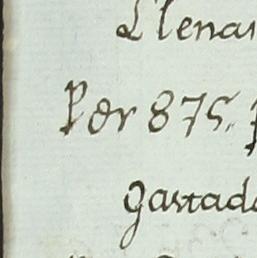 Llenar
Por 875.
gastado